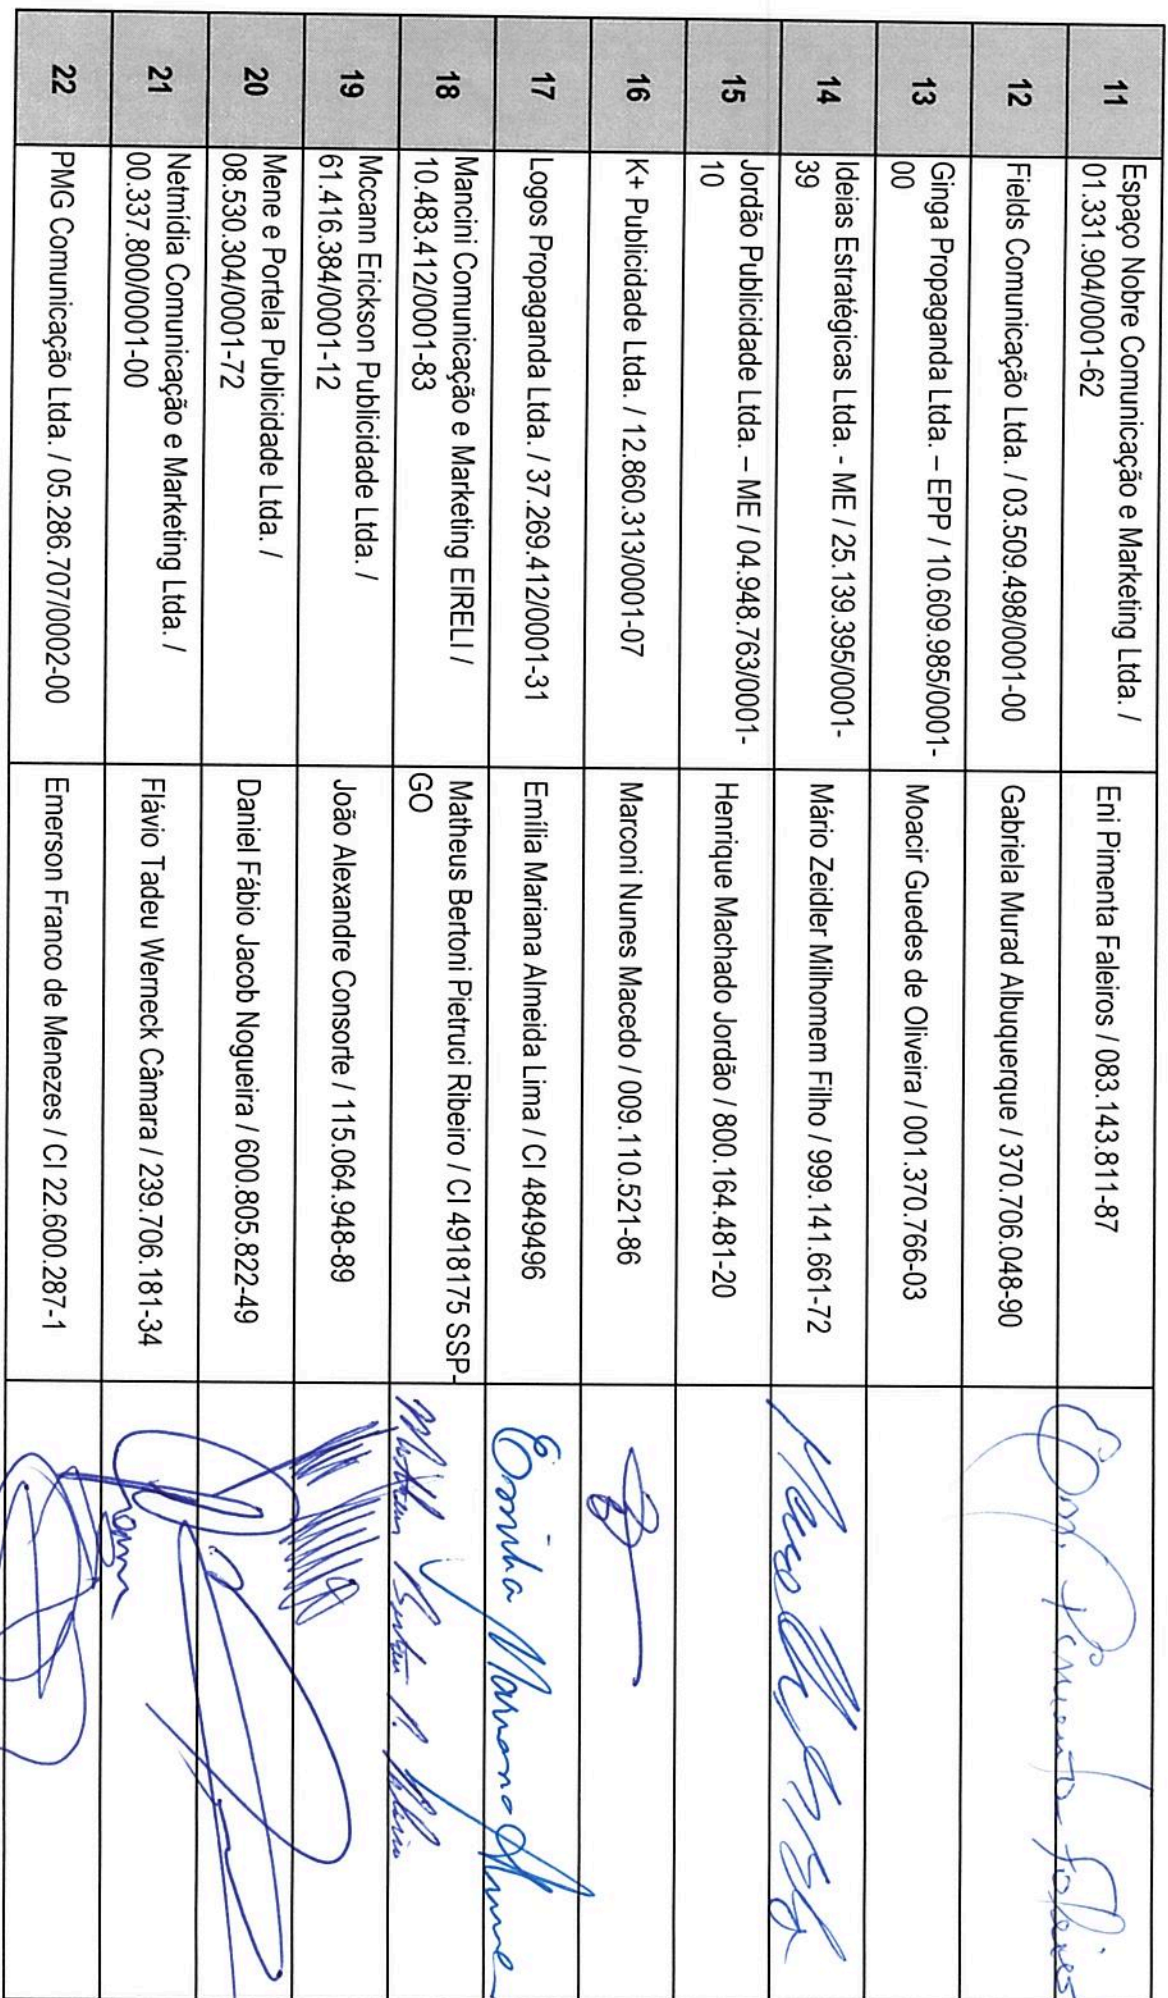 11
Espaço Nobre Comunicação e Marketing Ltda. /
01.331.904/0001-62
Eni Pimenta Faleiros / 083.143.811-87
Eni Pimenta Faleiros
12
Fields Comunicação Ltda. / 03.509.498/0001-00
Gabriela Murad Albuquerque / 370.706.048-90
13
Ginga Propaganda Ltda. – EPP / 10.609.985/0001-
00
Moacir Guedes de Oliveira / 001.370.766-03
14
Ideias Estratégicas Ltda. - ME / 25.139.395/0001-
39
Mário Zeidler Milhomem Filho / 999.141.661-72
15
Jordão Publicidade Ltda. – ME / 04.948.763/0001-
10
Henrique Machado Jordão / 800.164.481-20
16
K+ Publicidade Ltda. / 12.860.313/0001-07
Marconi Nunes Macedo / 009.110.521-86
17
Logos Propaganda Ltda. / 37.269.412/0001-31
Emília Mariana Almeida Lima / CI 4849496
Emília Mariana
18
Mancini Comunicação e Marketing EIRELI /
10.483.412/0001-83
Matheus Bertoni Pietruci Ribeiro / CI 4918175 SSP-
GO
Matheus Bertoni P. Ribeiro
19
Mccann Erickson Publicidade Ltda. /
61.416.384/0001-12
João Alexandre Consorte / 115.064.948-89
20
Mene e Portela Publicidade Ltda. /
08.530.304/0001-72
Daniel Fábio Jacob Nogueira / 600.805.822-49
21
Netmídia Comunicação e Marketing Ltda. /
00.337.800/0001-00
Flávio Tadeu Werneck Câmara / 239.706.181-34
22
PMG Comunicação Ltda. / 05.286.707/0002-00
Emerson Franco de Menezes / CI 22.600.287-1